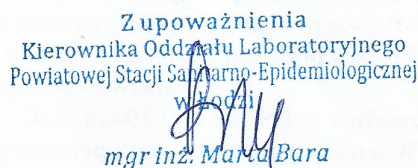 Z upoważnienia
Kierownika Oddziału Laboratoryjnego
Powiatowej Stacji Sanitarno-Epidemiologicznej
w Łodzi
mgr inż. Marta Bara